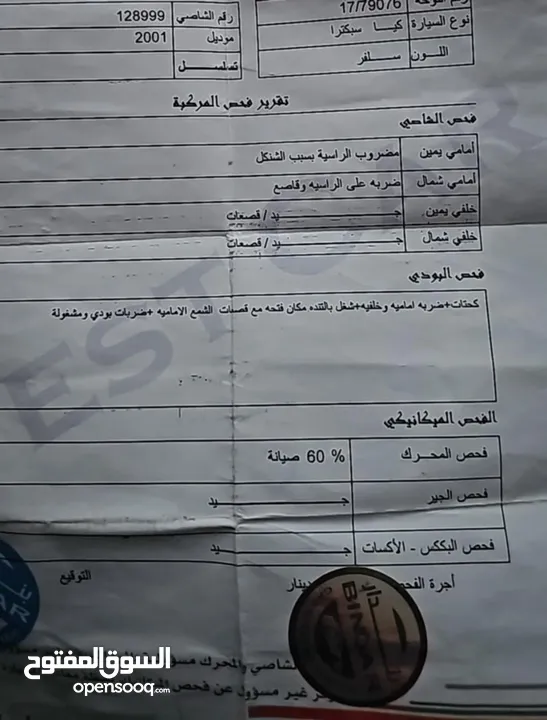 17/79076
رقم الشاصي 128999
نوع السيارة كيا سبكترا
موديل 2001
اللون سلفر
تسلسل
تقرير فحص المركبة
فحص الشاصي
أمامي يمين مضروب الراسية بسبب الشنكل
أمامي شمال ضربه على الراسيه وقاصع
خلفي يمين جيد / قصعات
خلفي شمال جيد / قصعات
فحص البودي
كحتات+ضربه اماميه وخلفيه+شغل بالتنده مكان فتحه مع قصات الشمع الاماميه +ضربات بودي ومشغولة
الفحص الميكانيكي
فحص المحرك 60 % صيانة
فحص الجير جيد
فحص البككس - الأكسات جيد
أجرة الفحص دينار
التوقيع
BIN
الشاصي والمحرك
غير مسؤول عن فحص
السوق المفتوح
opensooq.com
EST CAR